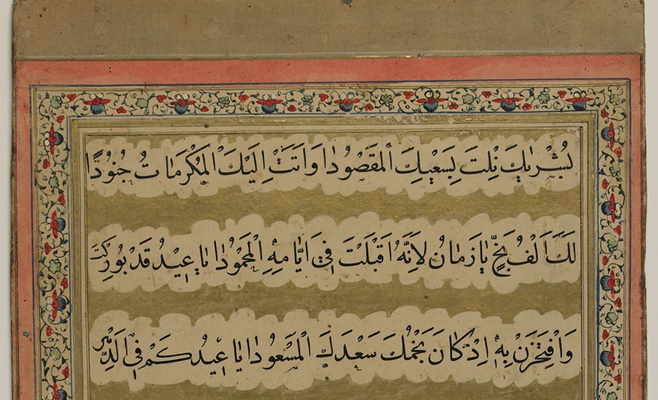 بُشْرَيكَ نِلتَ بِسَعيِكَ المَقصُودَا وَاتَتْ اِلَيْكَ المَكرمَاتُ جُنُودًا
لَكَ اَلفُ بَخٍّ يَا زَمَانُ لِاَنَّهُ اَقبَلتَ فِي ايَّامِهِ المَحمُودَا يَا عِيدُ قَد بُورِكتَ
وَافتَخِرَنْ بِهِ اِذ كَانَ نَجمُكَ سَعدَكَ المَسعُودَا يَا عِيدُ كَم فِي الدَّهرِ